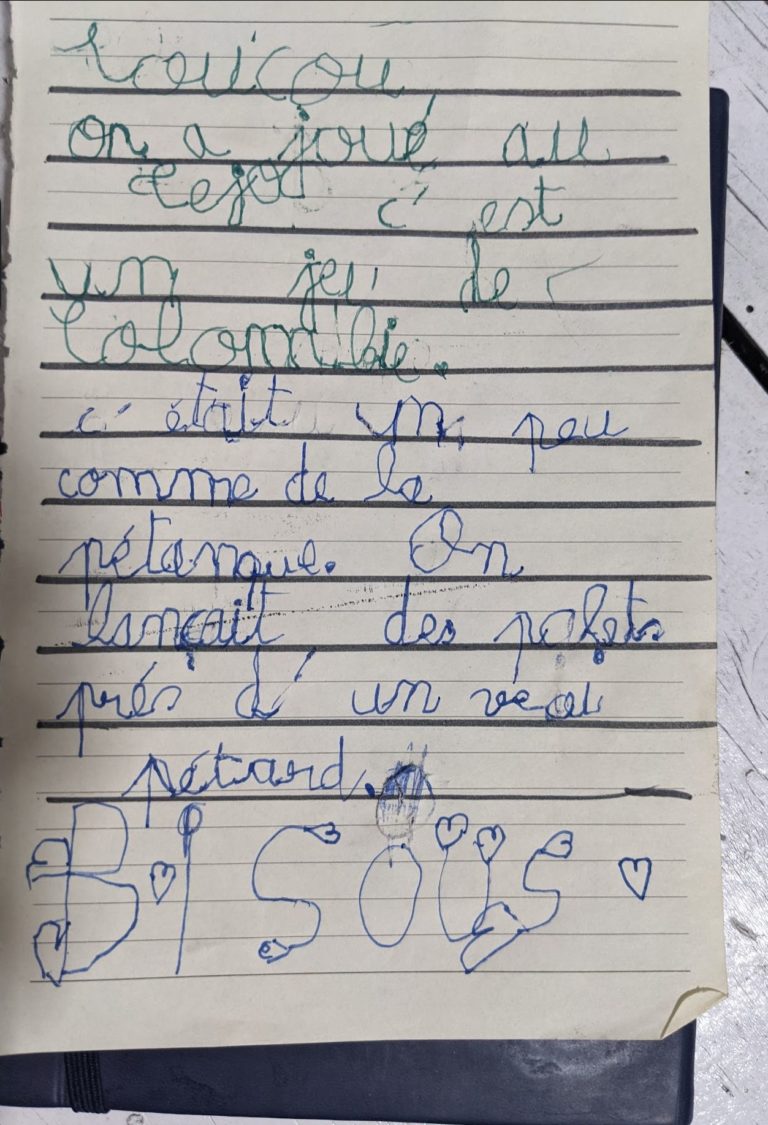 coucou
on a joué au
Tejo c'est
un jeu de
Colombie.
c'était un peu
comme de la
pétanque. On
lançait des palets
près d'un vrai
pétard.
BISOUS